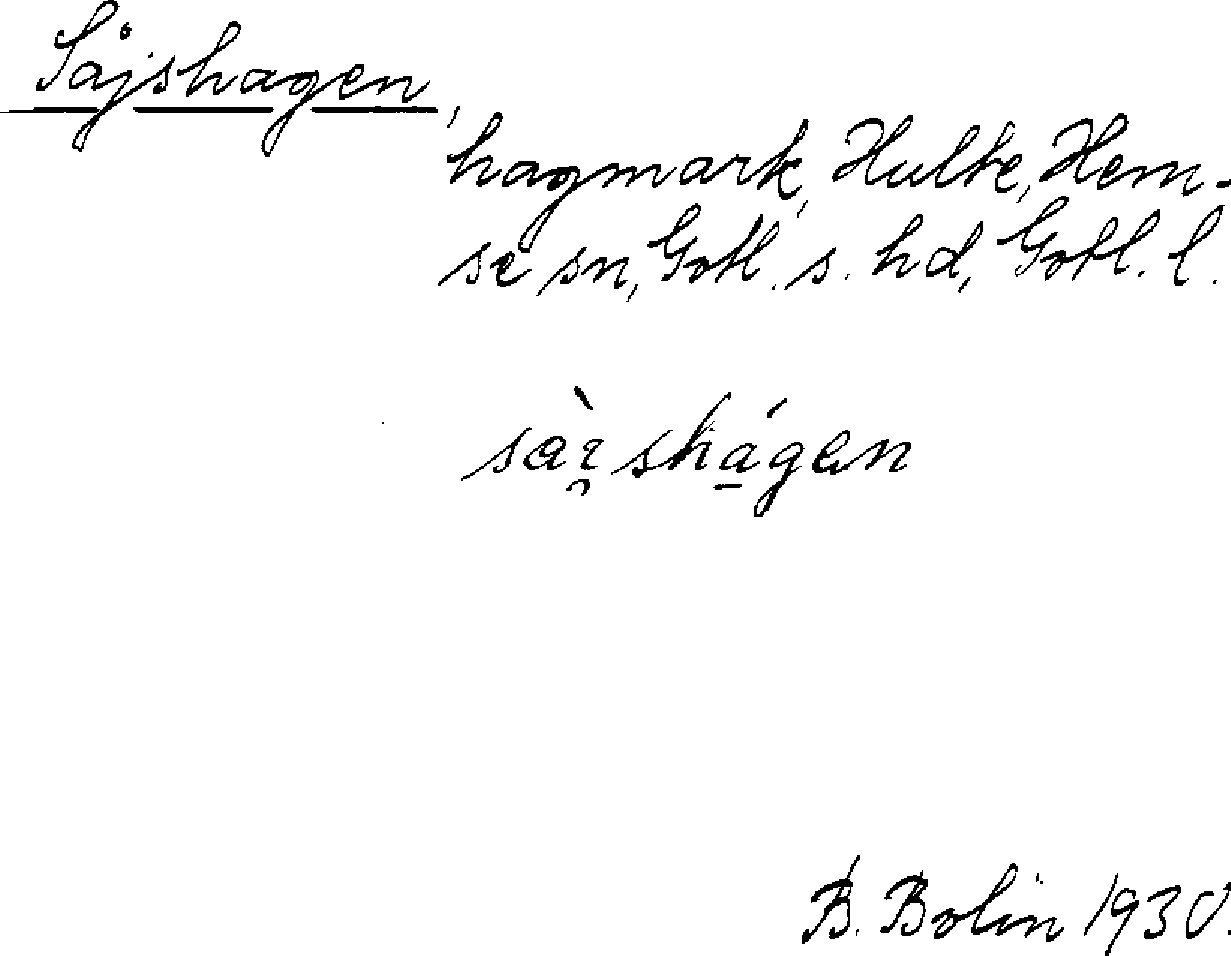 Såjshagen,
hagmark, Hulte, Hem-
se sn, Gotl. s. hd, Gotl. l.
B. Bolin 1930.